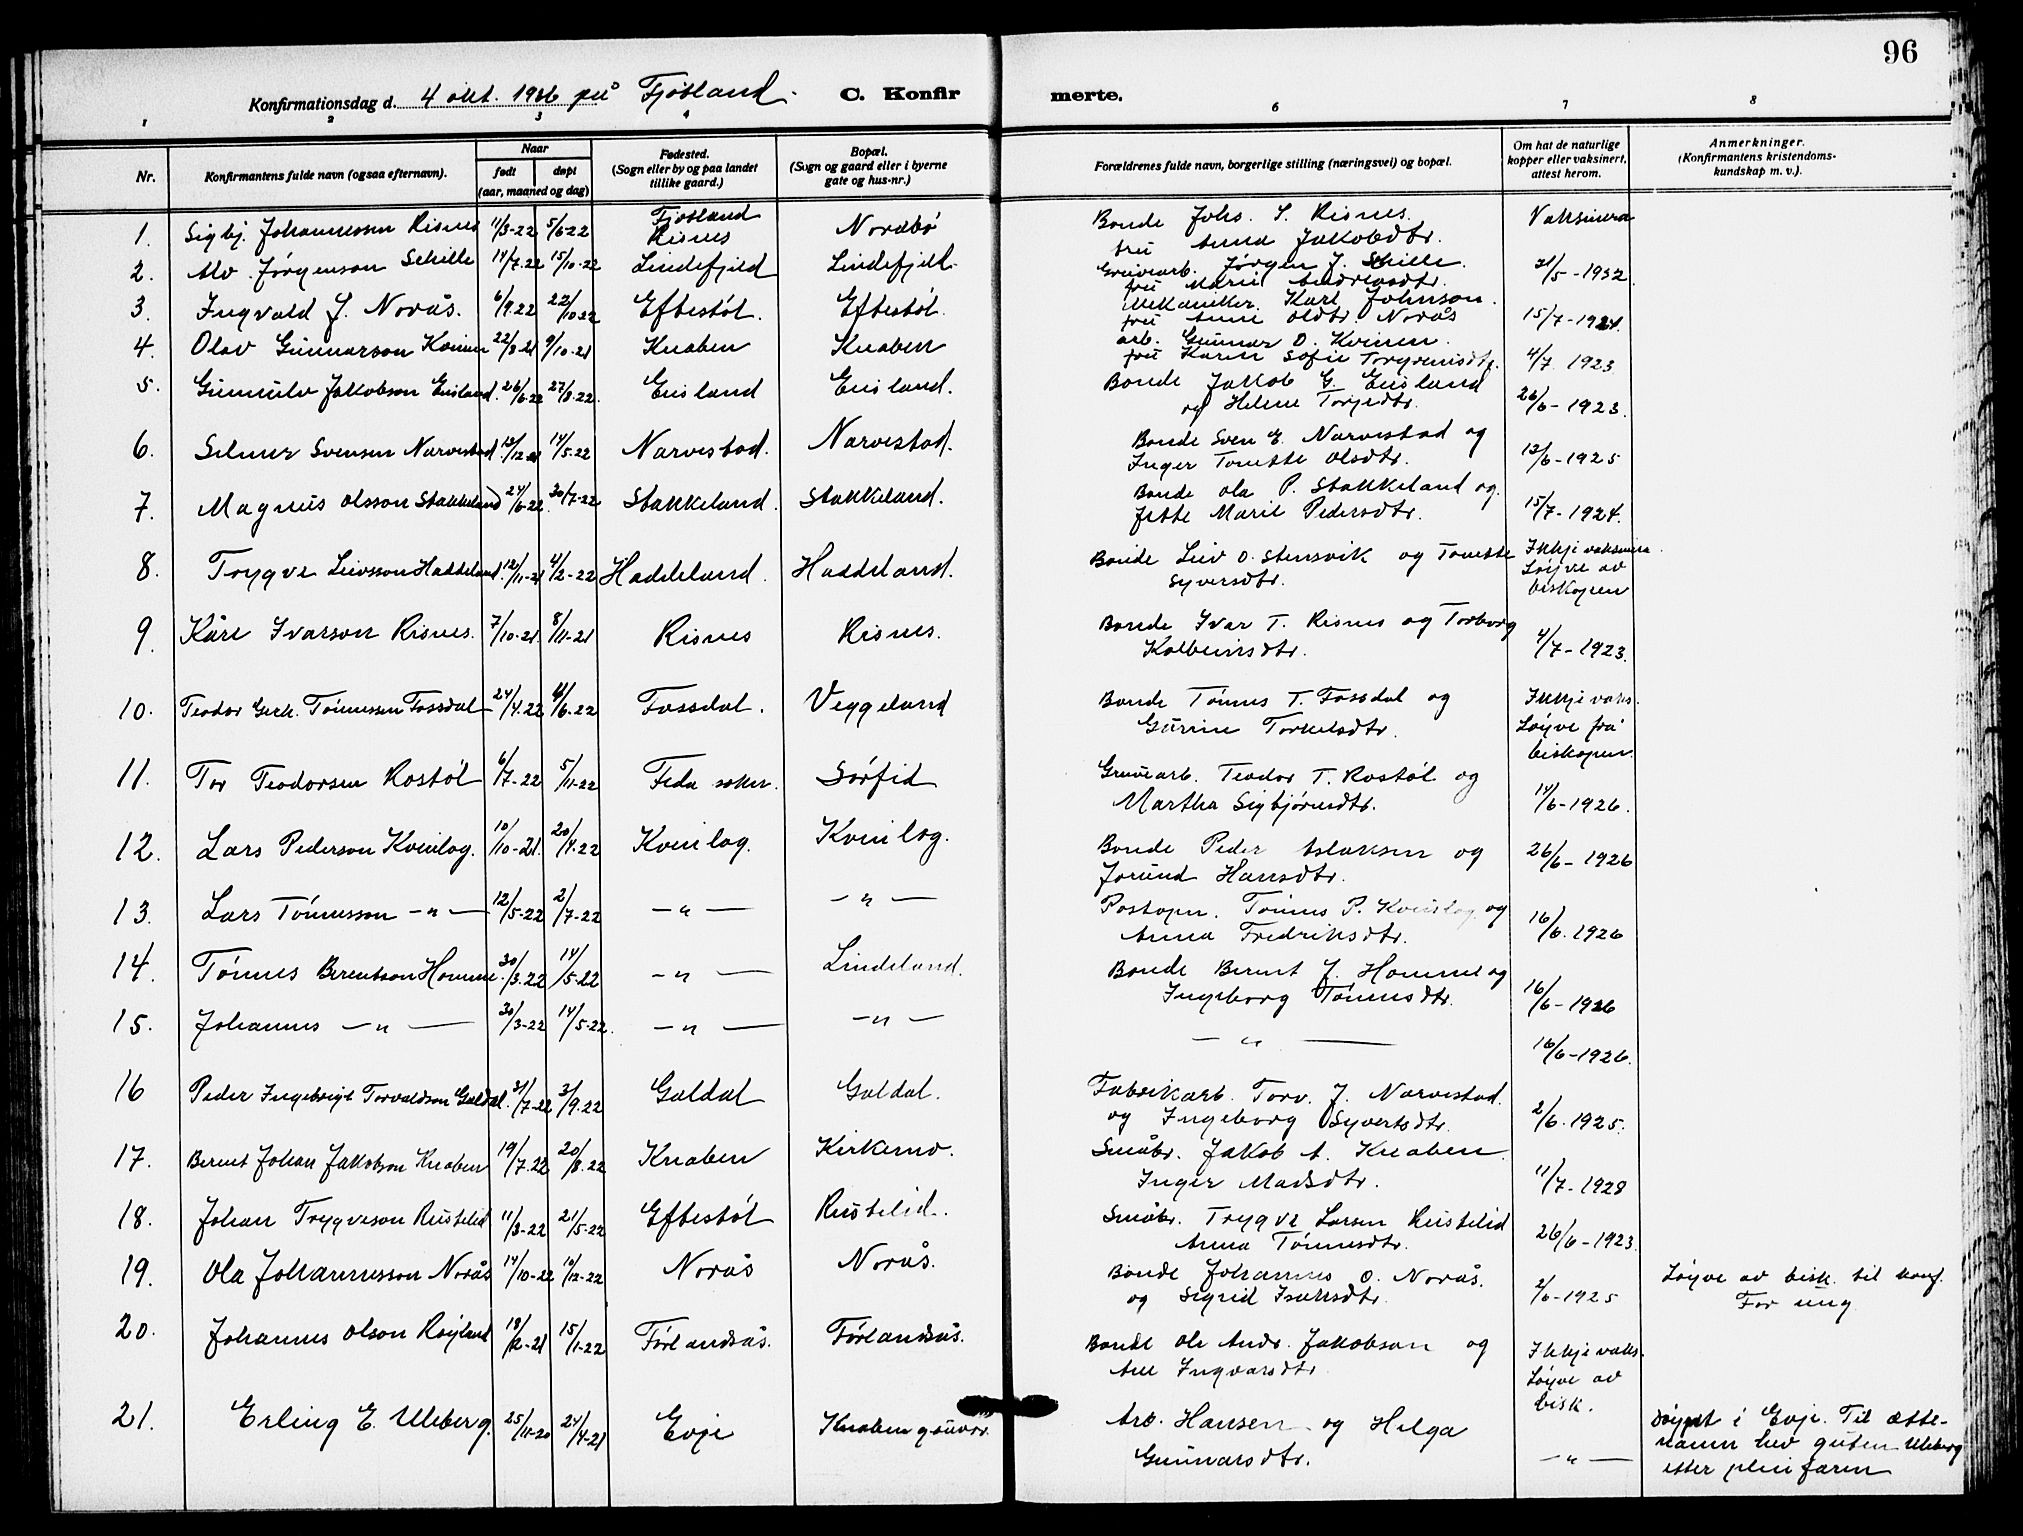 96
Konfirmationsdag d. 4 okt. 1936 på Fjotland. C. Konfirmerte.
1 2 3 4 6 7 8
Nr. Konfirmantens fulde navn (ogsaa efternavn). Naar født døpt (aar, maaned og dag) Fødested. (Sogn eller by og paa landet tillike gaard.) Bopæl. (Sogn og gaard eller i byerne gate og hus-nr.) Forældrenes fulde navn, borgerlige stilling (næringsvei) og bopæl. Om hat de naturlige kopper eller vaksinert, attest herom. Anmerkninger. (Konfirmantens kristendomskundskap m. v.).
1. Sigbj. Johannessen Risnes 11/3-22 5/6-22 Fjotland Risnes Nordbø Bonde Johs. S. Risnes. fru Anna Jakobdtr. Vaksinera
2. Alv Jørgenson Selille 14/7.22 15/10-22 Lindefjeld Lindefjell. Gruvearb. Jørgen J. fru Marie Andreasdtr. 21/5-1932
3. Ingvald J. Norås. 6/9.22 22/10.22 Eftestøl. Eftestøl. Mekaniker. Karl Johnson. fru Anne Oldtr. Norås 15/7-1924.
4. Olav Gunnarson Kvinen 22/8-21 9/10-21 Knaben Knaben arb. Gunnar O. Kvinen. fru Karen Sofie 4/7 1923
5. Gunnulv Jakobson Eiesland. 26/6.22 27/8.22. Eiesland Eiesland. Bonde Jakob G. Eiesland og Helene Torjedtr. 26/6-1923.
6. Selmer Svensen Narvestad. 13/12.21 14/5.22 Narvestad. Narvestad. Bonde Sven E. Narvestad og Inger Tonette Olsdtr. 13/6-1925
7. Magnus Olsson Stakkeland 24/6-22. 30/7-22 Stakkeland. Stakkeland. Bonde Ola P. Stakkeland og. Jette Marie Pedersdtr. 15/7-1924.
8. Trygve Leivsson Haddeland. 12/11-21 4/2-22 Haddeland. Haddeland. Bonde Leiv O. Stensvik og Tonette Syversdtr. Ikkje vaksinera. Løyve av biskopen
9. Kåre Ivarson Risnes. 7/10-21. 8/11-21 Risnes Risnes. Bonde Ivar T. Risnes og Torborg Kolbeinsdtr. 4/7-1923.
10. Teodor Gerh. Tønnessen Fossdal 24/4.22 4/6-22 Fossdal. Veggeland Bonde Tønnes T. Fossdal og Gurine Torkelsdtr. Ikkje vaks. Løyve frå biskopen.
11. Tor Teodorsen Rostøl 6/7-22 5/11-22 Feda sokn. Sørfid Gruvearb. Teodor T. Rostøl og Martha Sigbjørnsdtr. 14/6-1926.
12. Lars Pederson Kvinlog. 10/10-21. 20/4.22 Kvinlog. Kvinlog. Bonde Peder Aslaksen og Jorund Hansdtr. 26/6-1926
13. Lars Tønnesson -"- 12/5-22 2/7-22 -"- -"- Postopn. Tønnes P. Kvinlog og Anna Fredriksdtr. 16/6.1926
14. Tønnes Berentsson Homme. 30/3.22 14/5.22 -"- Lindeland. Bonde Berent J. Homme og Ingeborg Tønnesdtr. 16/6-1926
15. Johannes -"- 30/3-22 14/5-22. -"- -"- -"- 16/6-1926.
16 Peder Ingebrigt Torvaldson Galdal. 31/7-22 3/9.22 Galdal Galdal. Fabrikarb. Torv. J. Narvestad. og Ingeborg Syvertsdtr. 2/6.1925.
17. Berent Johan Jakobson Knaben 19/7.22 20/8.22 Knaben Kirkemo. Småbr. Jakob A. Knaben. Inger Madsdtr. 11/7-1928
18. Johan Trygveson Rustelid 11/3-22 21/5-22 Eftestøl Rustelid. Småbr. Trygve Larsen Rustelid Anna Tønnesdtr. 26/6-1923.
19. Ola Johannesson Norås 14/10-22 10/12-22 Norås Norås. Bonde Johannes O. Norås. og Sigrid Isaksdtr. 2/6-1925 Løyve av bisk. til konf. For ung
20. Johannes Olson Røyland 18/12-21 15/1-22 Førlandsås. Førlandsås. Bonde Ole Andr. Jakobson og Ane Ingvarsdtr. Ikkje vaks. Løyve av bisk.
21. Erling E. Uleberg. 25/11-20 24/4-21 Evje Knaben gruver. Arb. Hansen og Helga Gunnarsdtr. -"- Døypt i Evje. Til ættenamn hev guten Uleberg etter pleiefaren